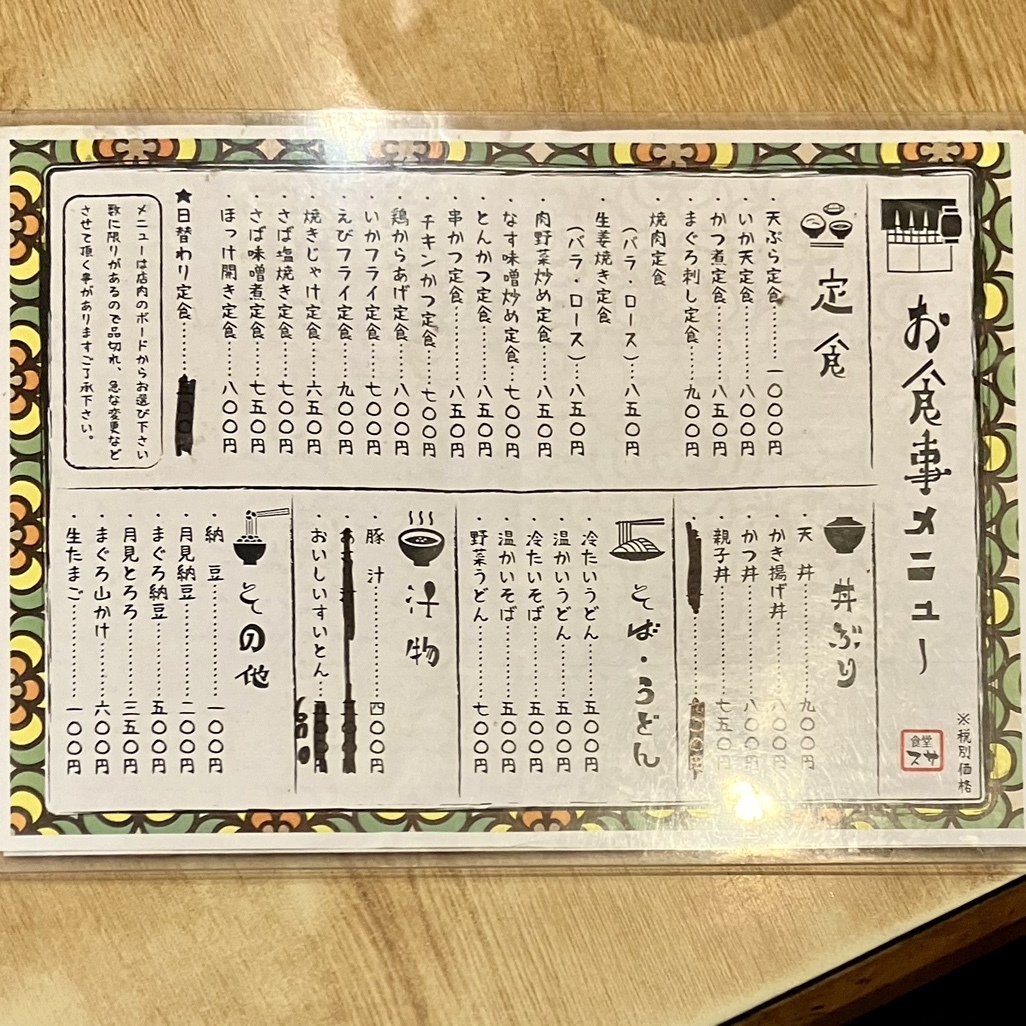 お食事メニュー
※税別価格
食堂
スサ
定食
・天ぷら定食……一〇〇〇円
・いか天定食……八〇〇円
・かつ煮定食……八五〇円
・まぐろ刺し定食……九〇〇円
・焼肉定食
（バラ・ロース）……八五〇円
・生姜焼き定食
（バラ・ロース）……八五〇円
・肉野菜炒め定食……八五〇円
・なす味噌炒め定食……七〇〇円
・とんかつ定食……八五〇円
・串かつ定食……八五〇円
・チキンかつ定食……七〇〇円
・鶏からあげ定食……八〇〇円
・いかフライ定食……七〇〇円
・えびフライ定食……九〇〇円
・焼きじゃけ定食……六五〇円
・さば塩焼き定食……七〇〇円
・さば味噌煮定食……七五〇円
・ほっけ開き定食……八〇〇円
★日替わり定食……
メニューは店内のボードからお選び下さい
数に限りがあるので品切れ、急な変更など
させて頂く事がありますご了承下さい。
丼ぶり
・天丼……九〇〇円
・かき揚げ丼……八〇〇円
・かつ丼……八〇〇円
・親子丼……七五〇円
そば・うどん
・冷たいうどん……五〇〇円
・温かいうどん……五〇〇円
・冷たいそば……五〇〇円
・温かいそば……五〇〇円
・野菜うどん……七〇〇円
汁物
・豚汁……四〇〇円
・おいしいすいとん……600
その他
・納豆……一〇〇円
・月見納豆……二〇〇円
・まぐろ納豆……五〇〇円
・月見とろろ……三五〇円
・まぐろ山かけ……六〇〇円
・生たまご……一〇〇円